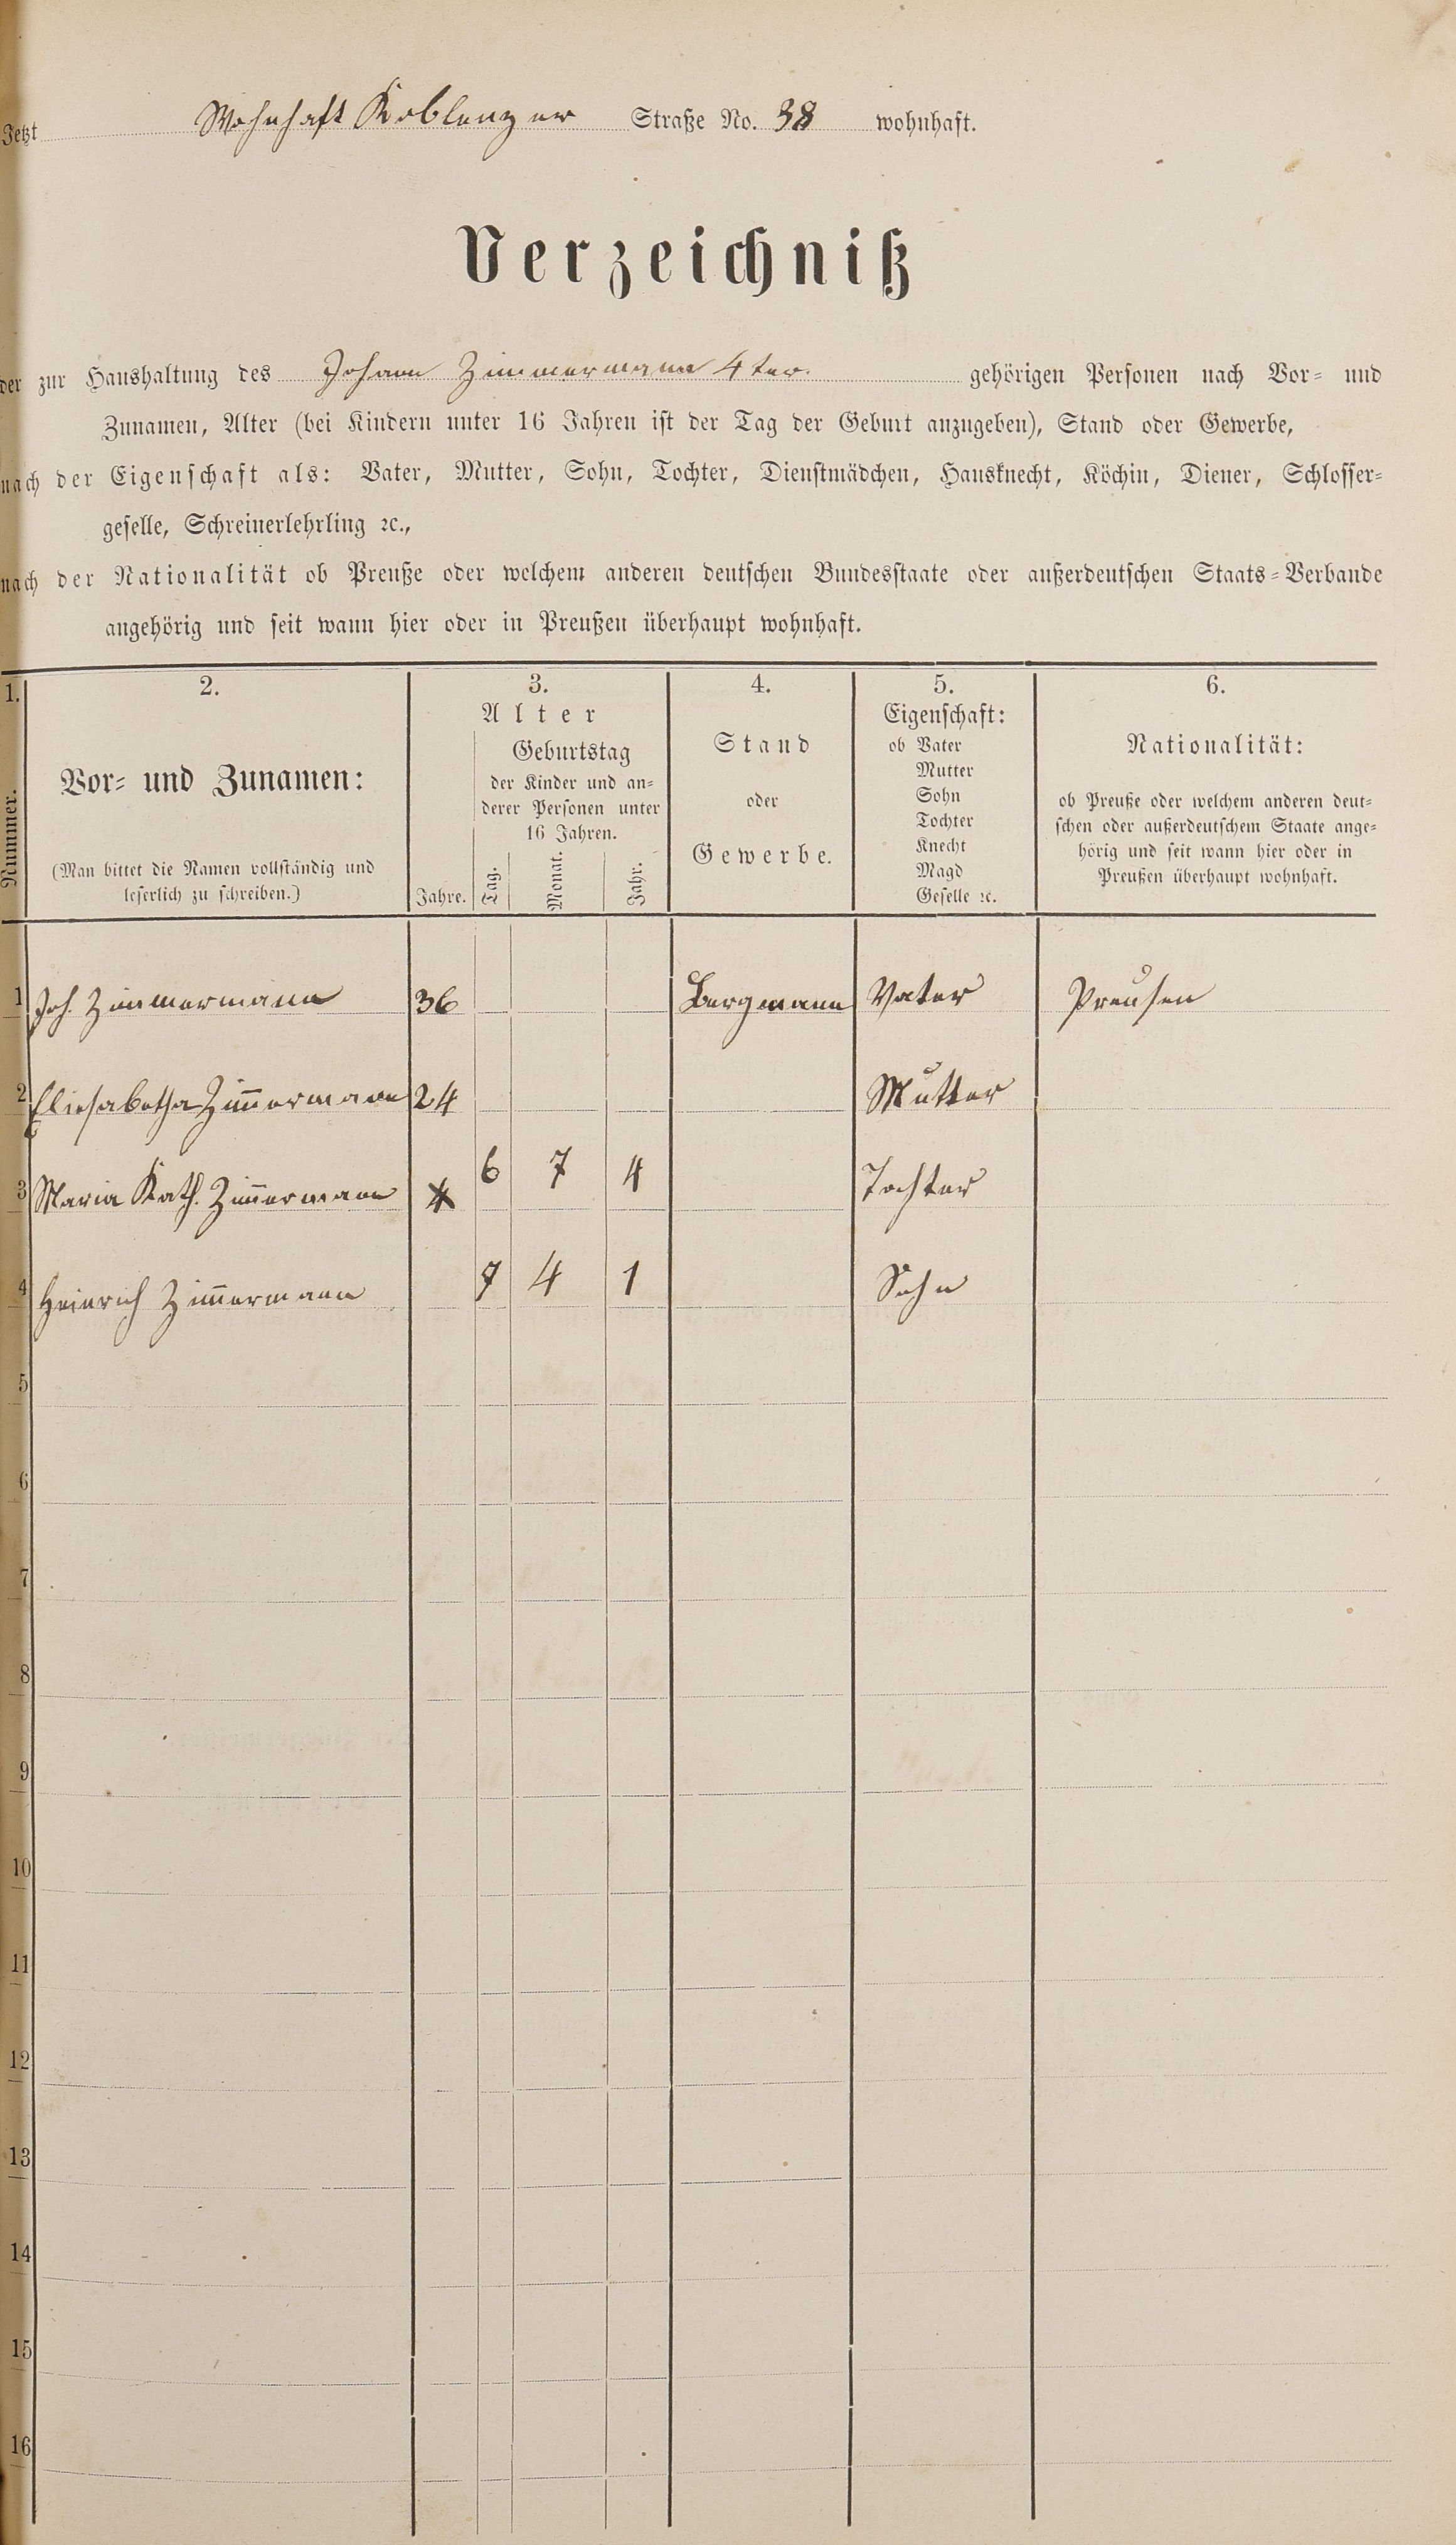 Jetzt Wohnhaft Koblenzer Straße No. 38 wohnhaft.
Verzeichniß
der zur Haushaltung des Johann Zimmermann 4ter. gehörigen Personen nach Vor- und
Zunamen, Alter (bei Kindern unter 16 Jahren ist der Tag der Geburt anzugeben), Stand oder Gewerbe,
nach der Eigenschaft als: Vater, Mutter, Sohn, Tochter, Dienstmädchen, Hausknecht, Köchin, Diener, Schlosser-
geselle, Schreinerlehrling ꝛc.,
nach der Nationalität ob Preuße oder welchem anderen deutschen Bundesstaate oder außerdeutschen Staats-Verbande
angehörig und seit wann hier oder in Preußen überhaupt wohnhaft.
1. 2. 3. 4. 5. 6.
Nummer.
Vor- und Zunamen:
(Man bittet die Namen vollständig und
leserlich zu schreiben.)
Alter
Geburtstag
der Kinder und an-
derer Personen unter
16 Jahren.
Jahre. Tag. Monat. Jahr.
Stand
oder
Gewerbe.
Eigenschaft:
ob Vater
Mutter
Sohn
Tochter
Knecht
Magd
Geselle ꝛc.
Nationalität:
ob Preuße oder welchem anderen deut-
schen oder außerdeutschem Staate ange-
hörig und seit wann hier oder in
Preußen überhaupt wohnhaft.
1 Joh. Zimmermann 36 Bergmann Vater Preusen
2 Eliesabetha Zim̅ermann 24 Mutter
3 Maria Kath. Zim̅ermann 6 7 4 Tochter
4 Heinrich Zim̅ermann 7 4 1 Sohn
5
6
7
8
9
10
11
12
13
14
15
16